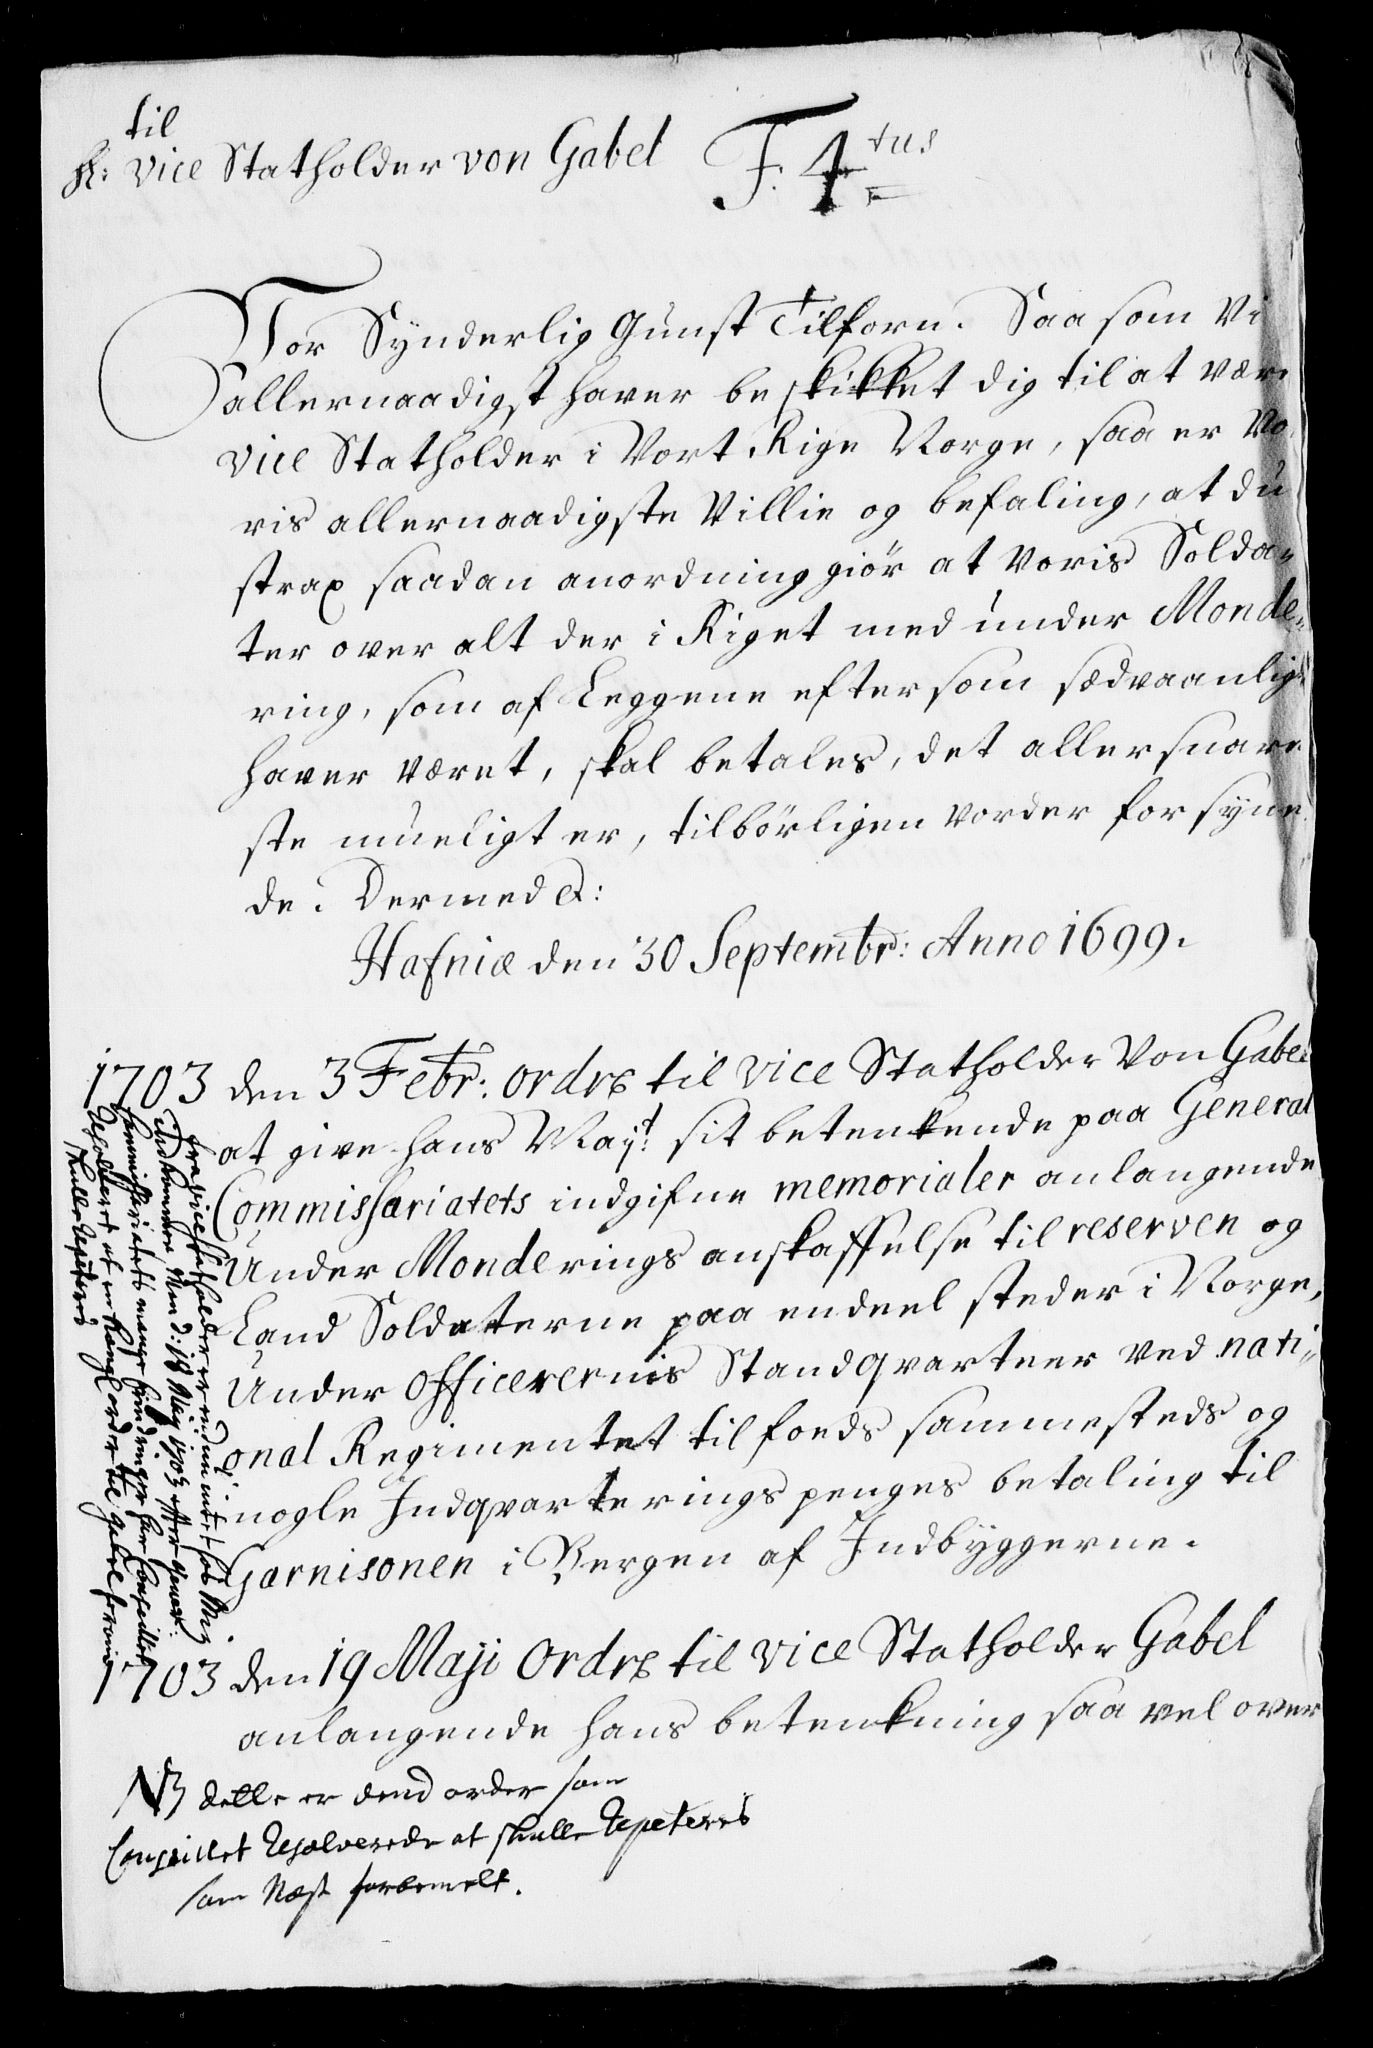 til
H: vice Statholder von Gabel F. 4tus
Vor Synderlig Gunst Tilforn. Saa som Vi
allernaadigst haver beskikket dig til at være
vice Statholder i Vort Rige Norge, saa er Vo
ris allernaadigste Villie og befaling, at du
strax saadan anordning giör at Voris Solda-
ter over alt der i Riget med under Monde-
ring, som af Leggene eftersom sædvaanligt
haver været, skal betales, det allersnare
ste mueligt er, tilbörligen vorder forsyne
de. Dermed &:
Hafniæ den 30 Septembr: Anno 1699.
1703 den 3 Febr: ordre til vice Statholder Von Gabel
at give hans Mayt: sit betenkende paa General
Commissariatets indgifne memorialer anlangende
Under Monderings anskaffelse til reserven og
Land Soldaterne paa endeel steder i Norge,
Under officerernis Standqvarteer ved nati-
onal Regimentet tilfods sammesteds og
nogle Indqvarterings penges betaling til
Garnisonen i Bergen af Indbyggerne.
fra vice Statholderen endnu intet
Indkommen Men d: 18 Maj 1703 efter Gener:
Commissariatets mange har Conseillet
Resolveret at en ordre til Gabel
skulle repeteris
1703 den 19 Maji Ordre til vice Statholder Gabel
anlangende hans betenkning saa vel over
NB dette er dend order som
Conseillet Resolverede at skulle Repeteris
som Næst forbemelt.